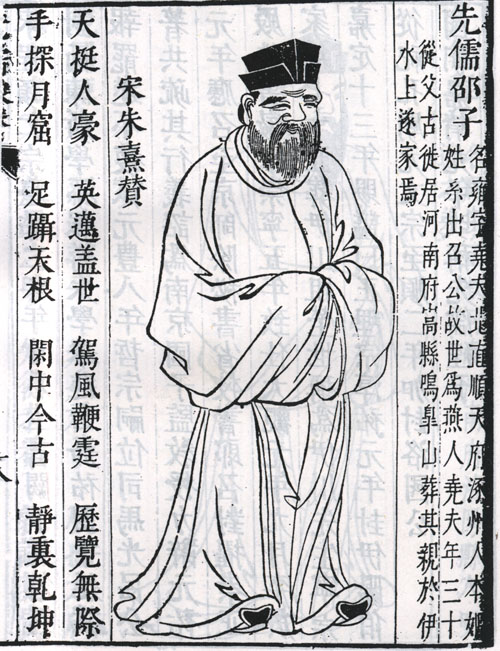 先儒邵子
名雍字堯夫直順天府涿州人本姬
姓系出召公故世爲燕人堯夫年三十
從父古徙居河南府嵩縣鳴皐山葬其親於伊
水上遂家焉
宋朱熹贊
天挺人豪 英邁盖世 駕風鞭霆 歷覽無際
手探月窟 足躡天根 閑中今古 靜裏乾坤